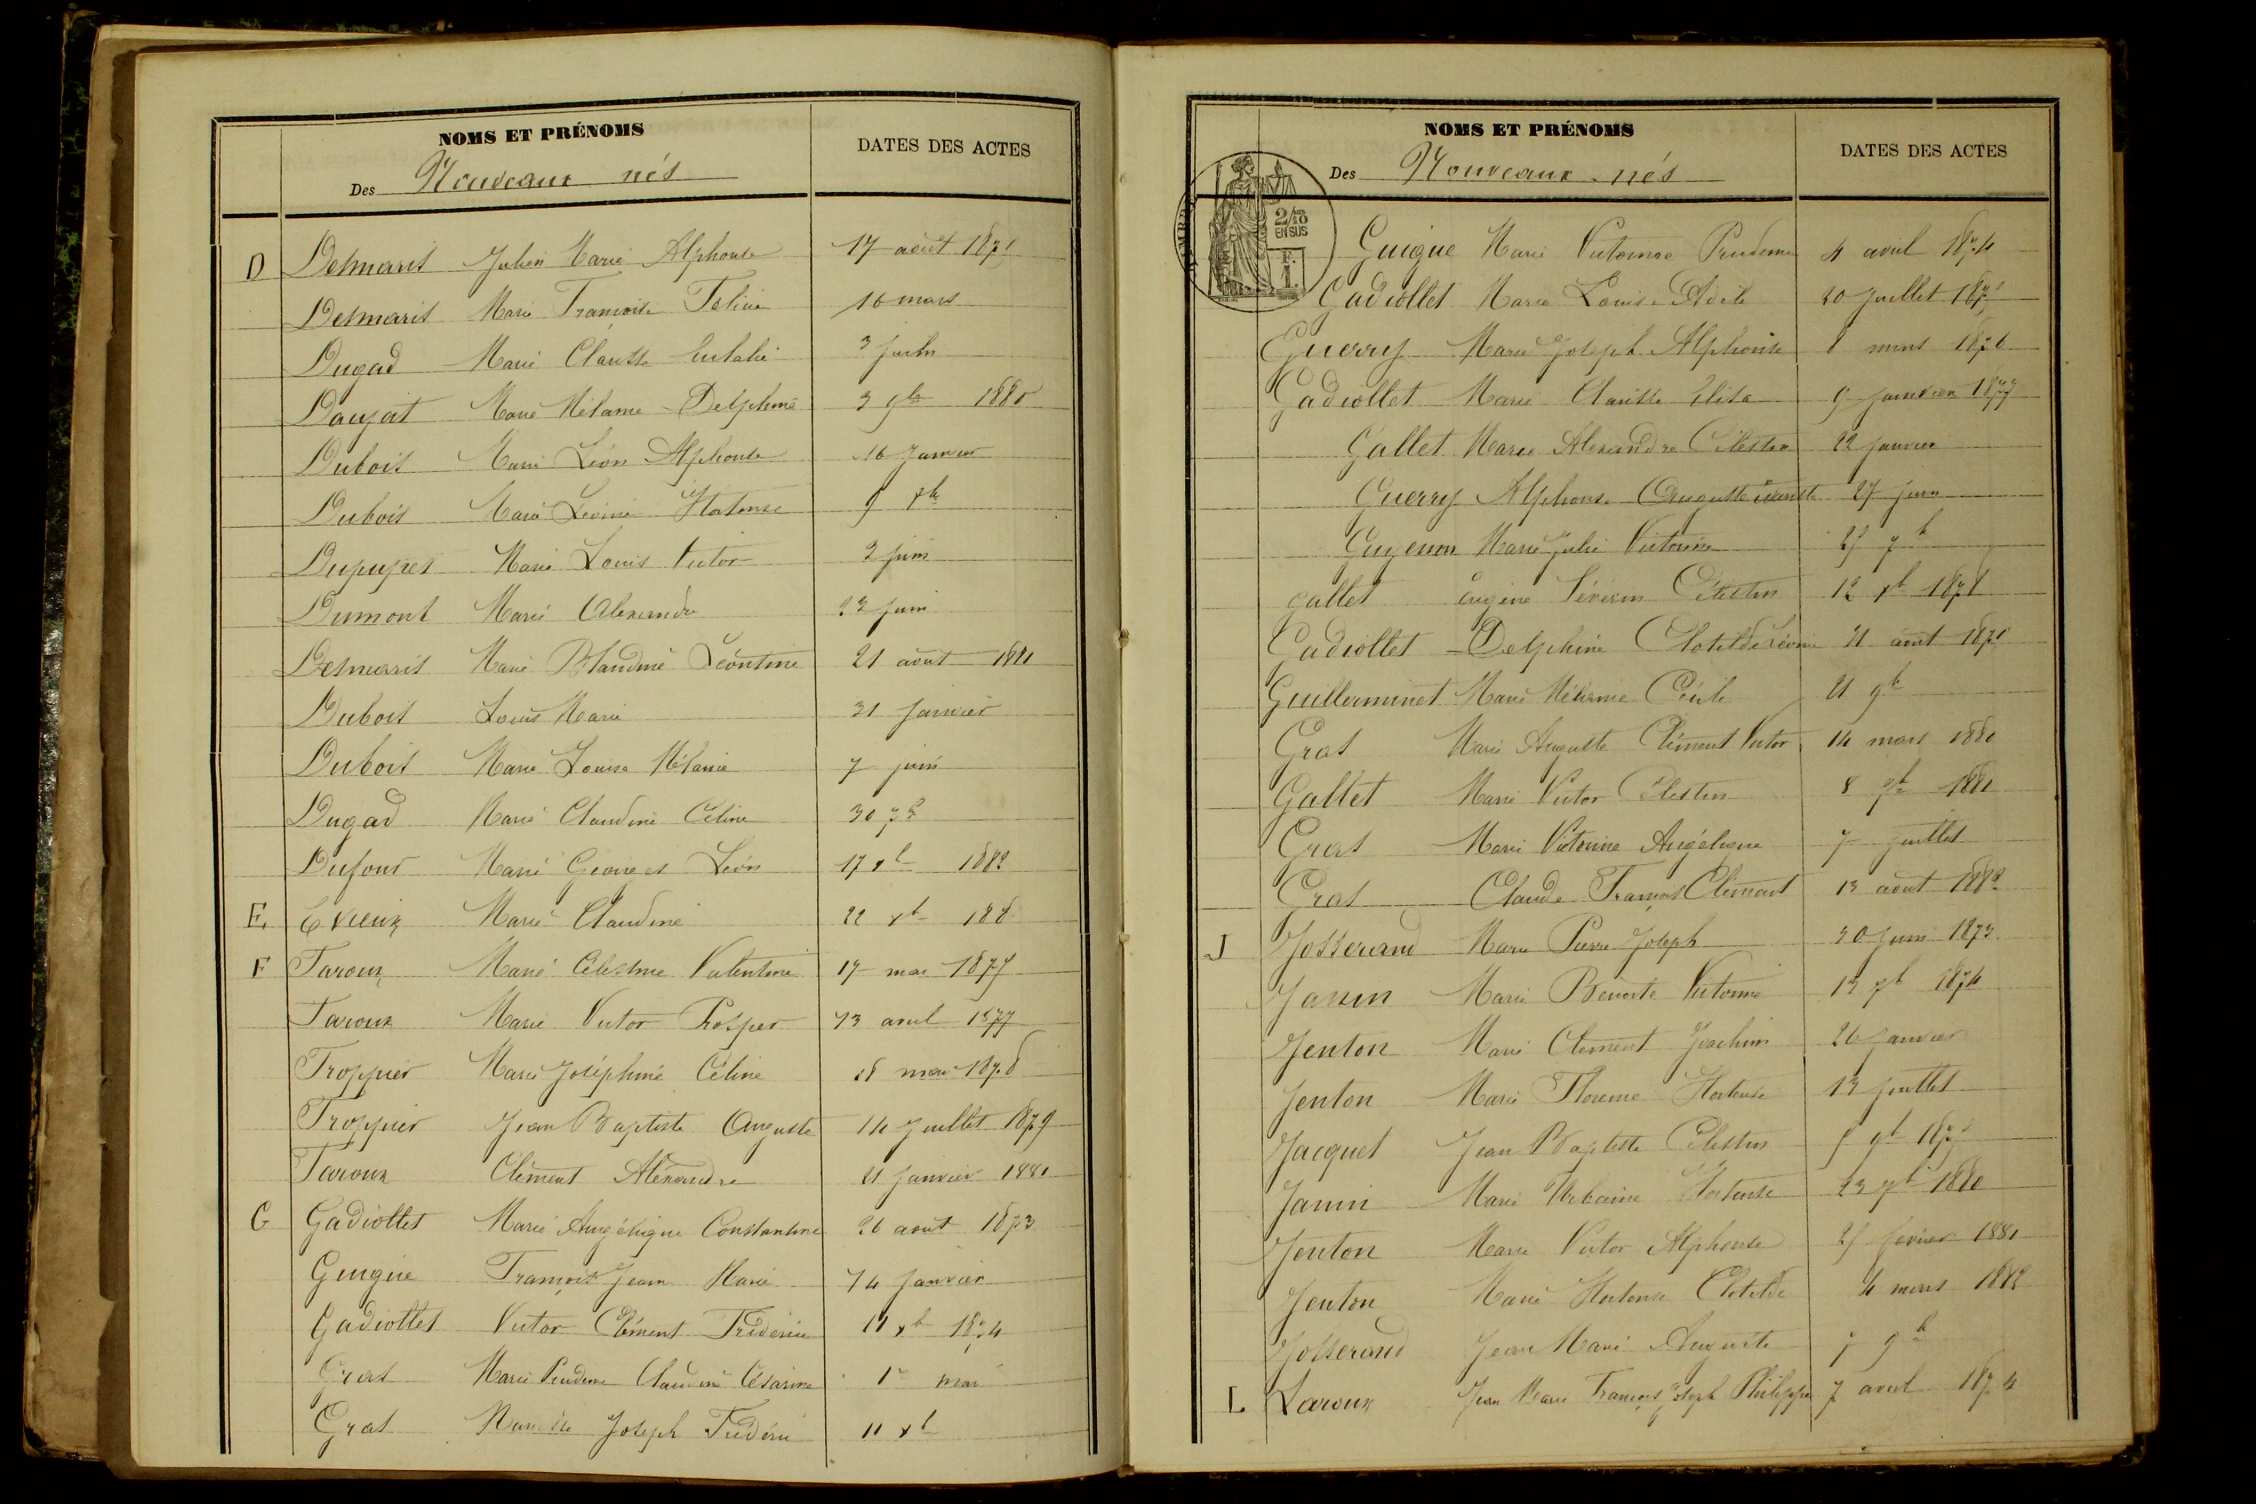 NOMS ET PRÉNOMS
Des Nouveaux nés
DATES DES ACTES
D Desmaris Julien Marie Alphonse 17 août
Desmaris Marie Françoise Félicie 16 mars
Dugad Marie Clarisse Eulalie 3 juin
Daujat Marie Mélanie Delphine 3 9bre 1880
Dubois Marie Léon Alphonse 16 Janvier
Dubois Marie Léonie Hortense
Dupupet Marie Louis Victor 2 juin
Dumont Marie Alexandre 23 juin
Desmaris Marie Blandine Léontine 21 août 1881
Dubois Louis Marie 31 janvier
Dubois Marie Louise Mélanie 7 juin
Dugad Marie Claudine Céline 30
Dufour Marie Georges Léon 17 xb 1882
E Evieux Marie Claudine 22 xb 188
F Faroux Marie Célestine Valentine 17 mai
Faroux Marie Victor Prosper 13 avril 1877
Froppier Marie Joséphine Céline 18 mai 1878
Froppier Jean Baptiste Auguste 14 Juillet 1879
Faroux Clément Alexandre 21 janvier 1881
G Gadiollet Marie Angélique Constantine 26 août 1873
Guigue François Jean Marie 14 Janvier
Gadiollet Victor Clément Frédéric 11 xb 1874
Gras Marie Prudence Claudine Césarine 1er mai
Gras Joseph Frédéric 11 xb
NOMS ET PRÉNOMS
Des Nouveaux nés
DATES DES ACTES
2/10
EN SUS
F.
1.
Guigue Marie Victorine Prudence 4 avril 1874
Gadiollet Marie Louise Adèle 20 Juillet
Guerry Marie Joseph Alphonse 8 mars 1876
Gadiollet Marie Clarisse Elisa 9 janvier 1877
Gallet Marie Alexandre Célestin 22 janvier
Guerry Alphonse Auguste 27 juin
Marie Julie Victorine
Gallet Eugène Séverin Célestin 12 xb 1878
Gadiollet Delphine Clotilde Léonie 21 août
Guillerminet Marie Mélanie Cécile 21 9b
Gras Marie Auguste Clément Victor 14 mars 1880
Gallet Marie Victor Célestin 8 9b 1881
Gras Marie Victorine Angélique 7 juillet
Gras Claude François Clément 13 août 1882
J Josserand Marie Pierre Joseph 30 juin 1873
Janin Marie Benoite Victorine 13 1874
Jenton Marie Clément Joachim 26 janvier
Jenton Marie Florence Hortense 13 juillet
Jacquet Jean Baptiste Célestin
Janin Marie Urbaine Hortense 23 1880
Jenton Marie Victor Alphonse 25 février 1881
Jenton Marie Hortense Clotilde 4 mars 1882
Josserand Jean Marie Auguste 7 9b
L Laroux Jean Marie François Joseph Philippe 7 avril 1874